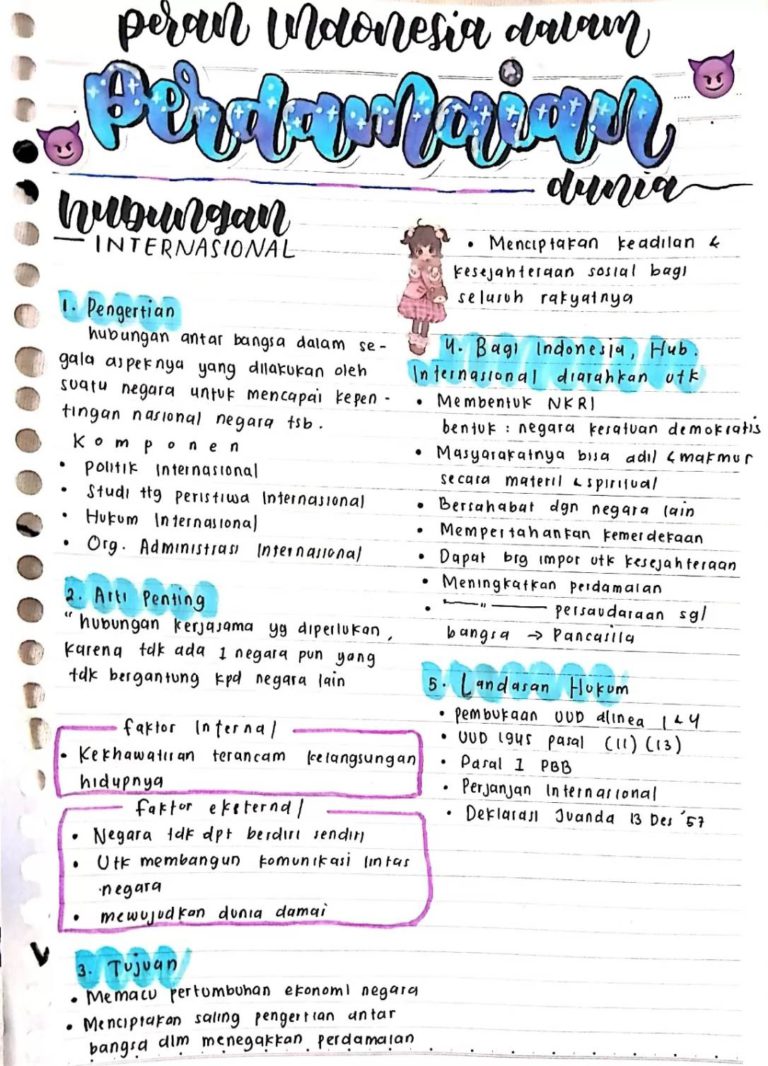 peran Indonesia dalam
perdamaian
dunia
hubungan
INTERNASIONAL
1. Pengertian
hubungan antar bangsa dalam se-
gala aspeknya yang dilakukan oleh
suatu negara untuk mencapai kepen-
tingan nasional negara tsb.
Komponen
• Politik Internasional
• Studi ttg peristiwa Internasional
• Hukum Internasional
• Org. Administrasi Internasional
2. Arti Penting
" hubungan kerjasama yg diperlukan,
karena tdk ada 1 negara pun yang
tdk bergantung kpd negara lain
faktor Internal
• Kekhawatiran terancam kelangsungan
hidupnya
faktor eksternal
• Negara tdk dpt berdiri sendiri
• Utk membangun komunikasi lintas
negara
• mewujudkan dunia damai
3. Tujuan
• Memacu pertumbuhan ekonomi negara
• Menciptakan saling pengertian antar
bangsa dlm menegakkan perdamaian
• Menciptakan keadilan &
kesejahteraan sosial bagi
seluruh rakyatnya
4. Bagi Indonesia, Hub.
Internasional diarahkan utk
• Membentuk NKRI
bentuk : negara kesatuan demokratis
• Masyarakatnya bisa adil & makmur
secara materil & spiritual
• Bersahabat dgn negara lain
• Mempertahankan kemerdekaan
• Dapat brg impor utk kesejahteraan
• Meningkatkan perdamaian
• —"— persaudaraan sgl
bangsa → Pancasila
5. Landasan Hukum
• Pembukaan UUD alinea 1 & 4
• UUD 1945 pasal (11) (13)
• Pasal 1 PBB
• Perjanjan Internasional
• Deklarasi Juanda 13 Des '57